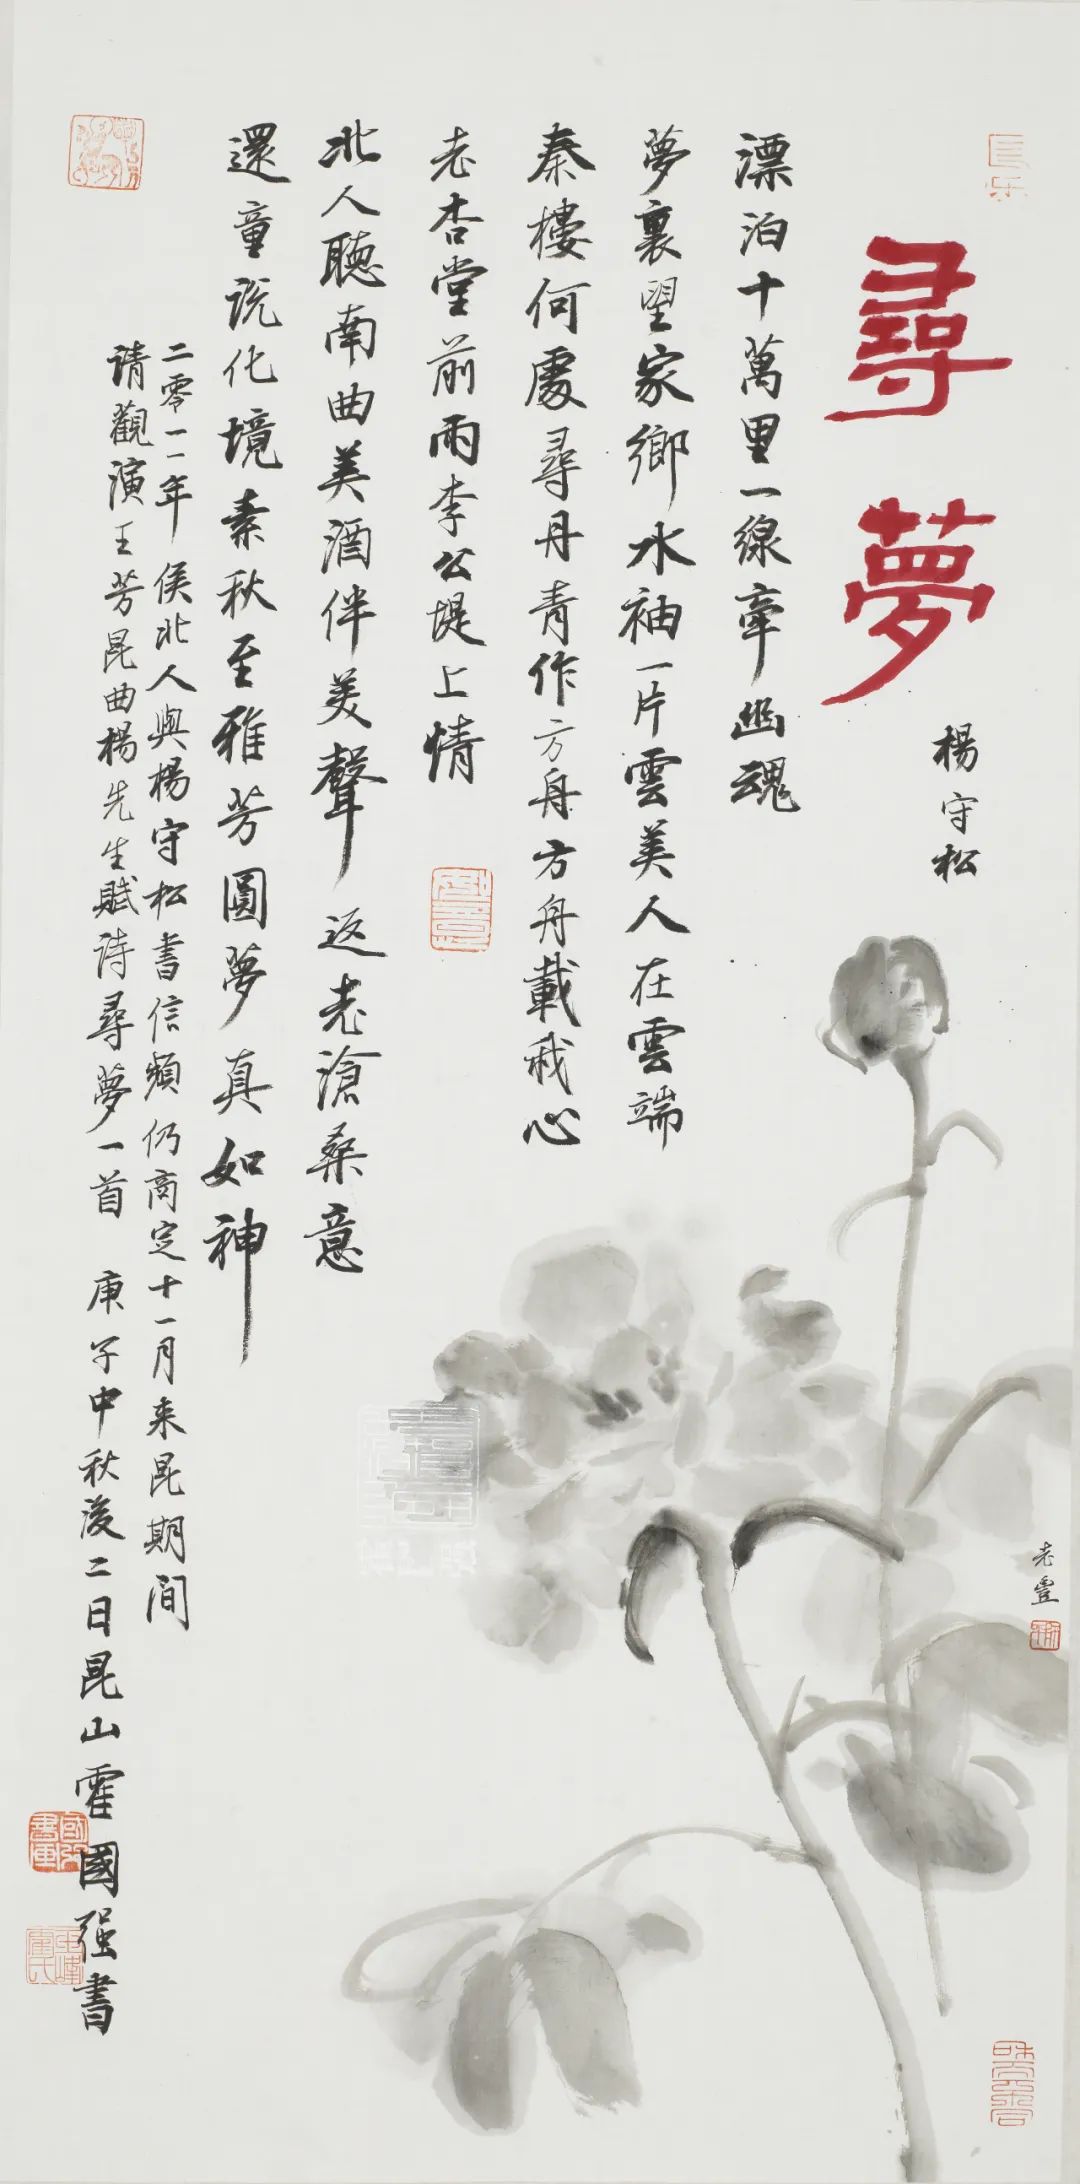 尋夢
楊守松
漂泊十萬里一線牽幽魂
夢裏望家鄉水袖一片雲美人在雲端
秦樓何處尋丹青作方舟方舟載我心
老杏堂前雨李公堤上情
北人聽南曲美酒伴美聲返老滄桑意
還童說化境素秋至雅芳圓夢真如神
二零一一年侯北人與楊守松書信頻仍商定十一月来昆期间
请觀演王芳昆曲楊先生賦诗尋夢一首 庚子中秋後二日昆山霍國强書
老豐